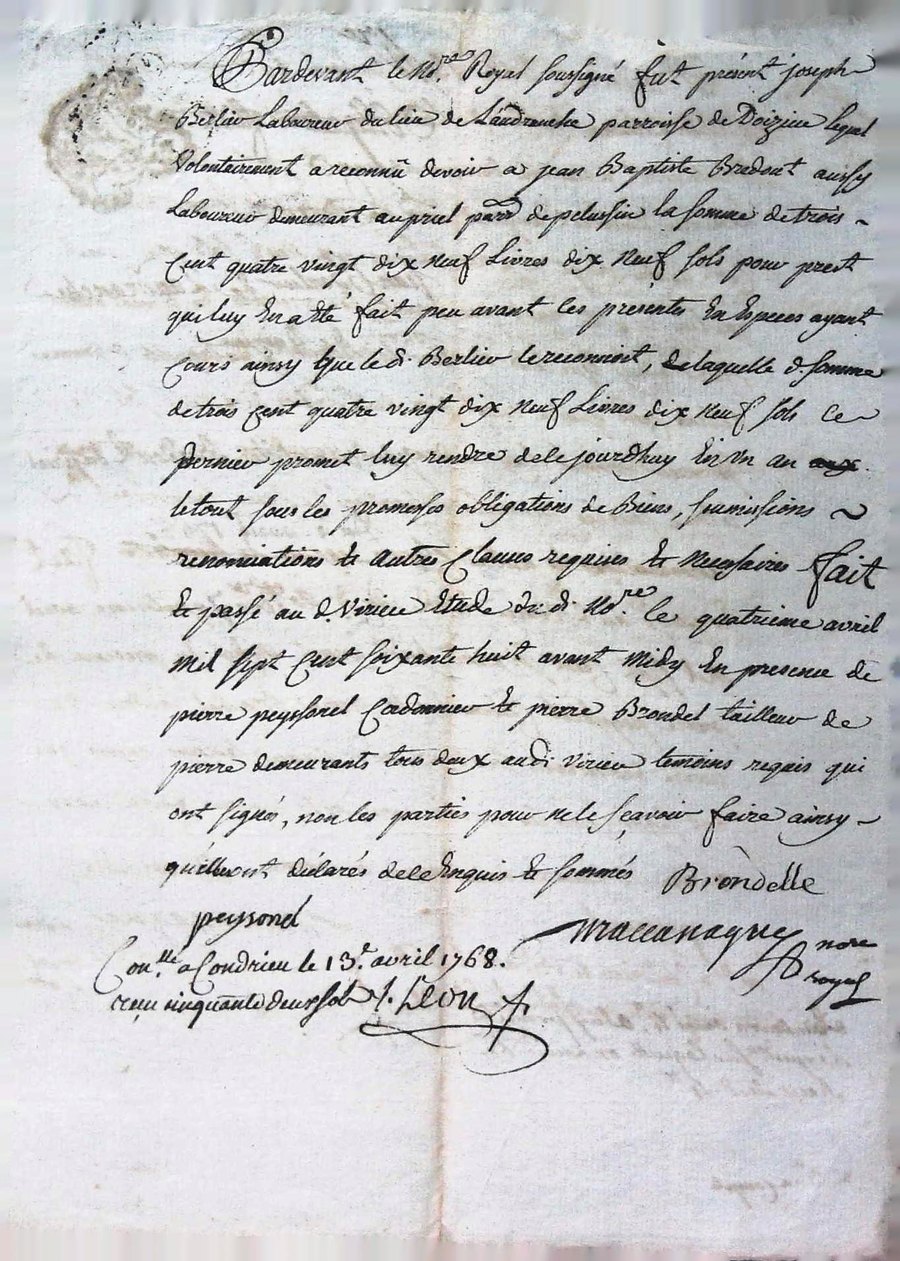 Pardevant le No.re Royal soussigné fut présent joseph
Berlier Laboureur du lieu de parroisse de Doizieu lequel
Volontairement a reconnû devoir a jean Baptiste Bredout aussy
Laboureur demeurant au priel parr de pelussin la somme de trois
Cent quatre vingt dix neuf Livres dix neuf sols pour prest
qui luy En a été fait peu avant les présentes En Especes ayant
Cours ainsy que le d. Berlier le reconnoit, de laquelle d. somme
de trois Cent quatre vingt dix neuf Livres dix neuf sols ce
dernier promet luy rendre de ce jourdhuy En un an
le tout sous les promesses obligations de Biens, soumissions
renonciations Et autres Clauses requises Et necessaires fait
Et passé au d. Virieu Etude du d. No.re le quatrieme avril
mil sept Cent soixante huit avant midy En presence de
pierre peyssonel Cordonnier Et pierre Brondel tailleur de
pierre demeurants tous deux aud. Virieu temoins requis qui
ont signés, non les parties pour ne le sçavoir faire ainsy
qu'elles ont déclarés de ce Enquis Et sommés Brondelle
peyssonel
nore
royal
Con.lle a Condrieu le 13.e avril 1768.
reçu cinquante deux sols J. Léon